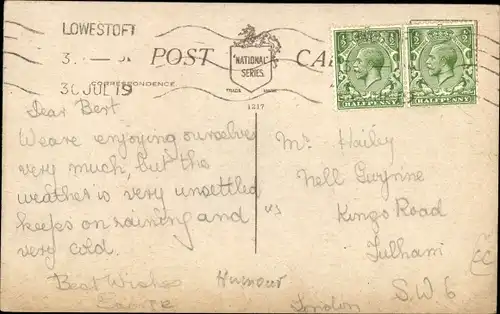 LOWESTOFT
30 JUL 19
POST CA
"NATIONAL"
SERIES
CORRESPONDENCE
TRADE MARK
1217
HALFPENNY
HALFPENNY
Dear Bert
We are enjoying ourselves
very much, but the
weather is very unsettled
keeps on raining and
very cold.
Best Wishes
Mr Hailey
Nell Gwynne
Kings Road
Fulham
S.W. 6
London
Humour
CC